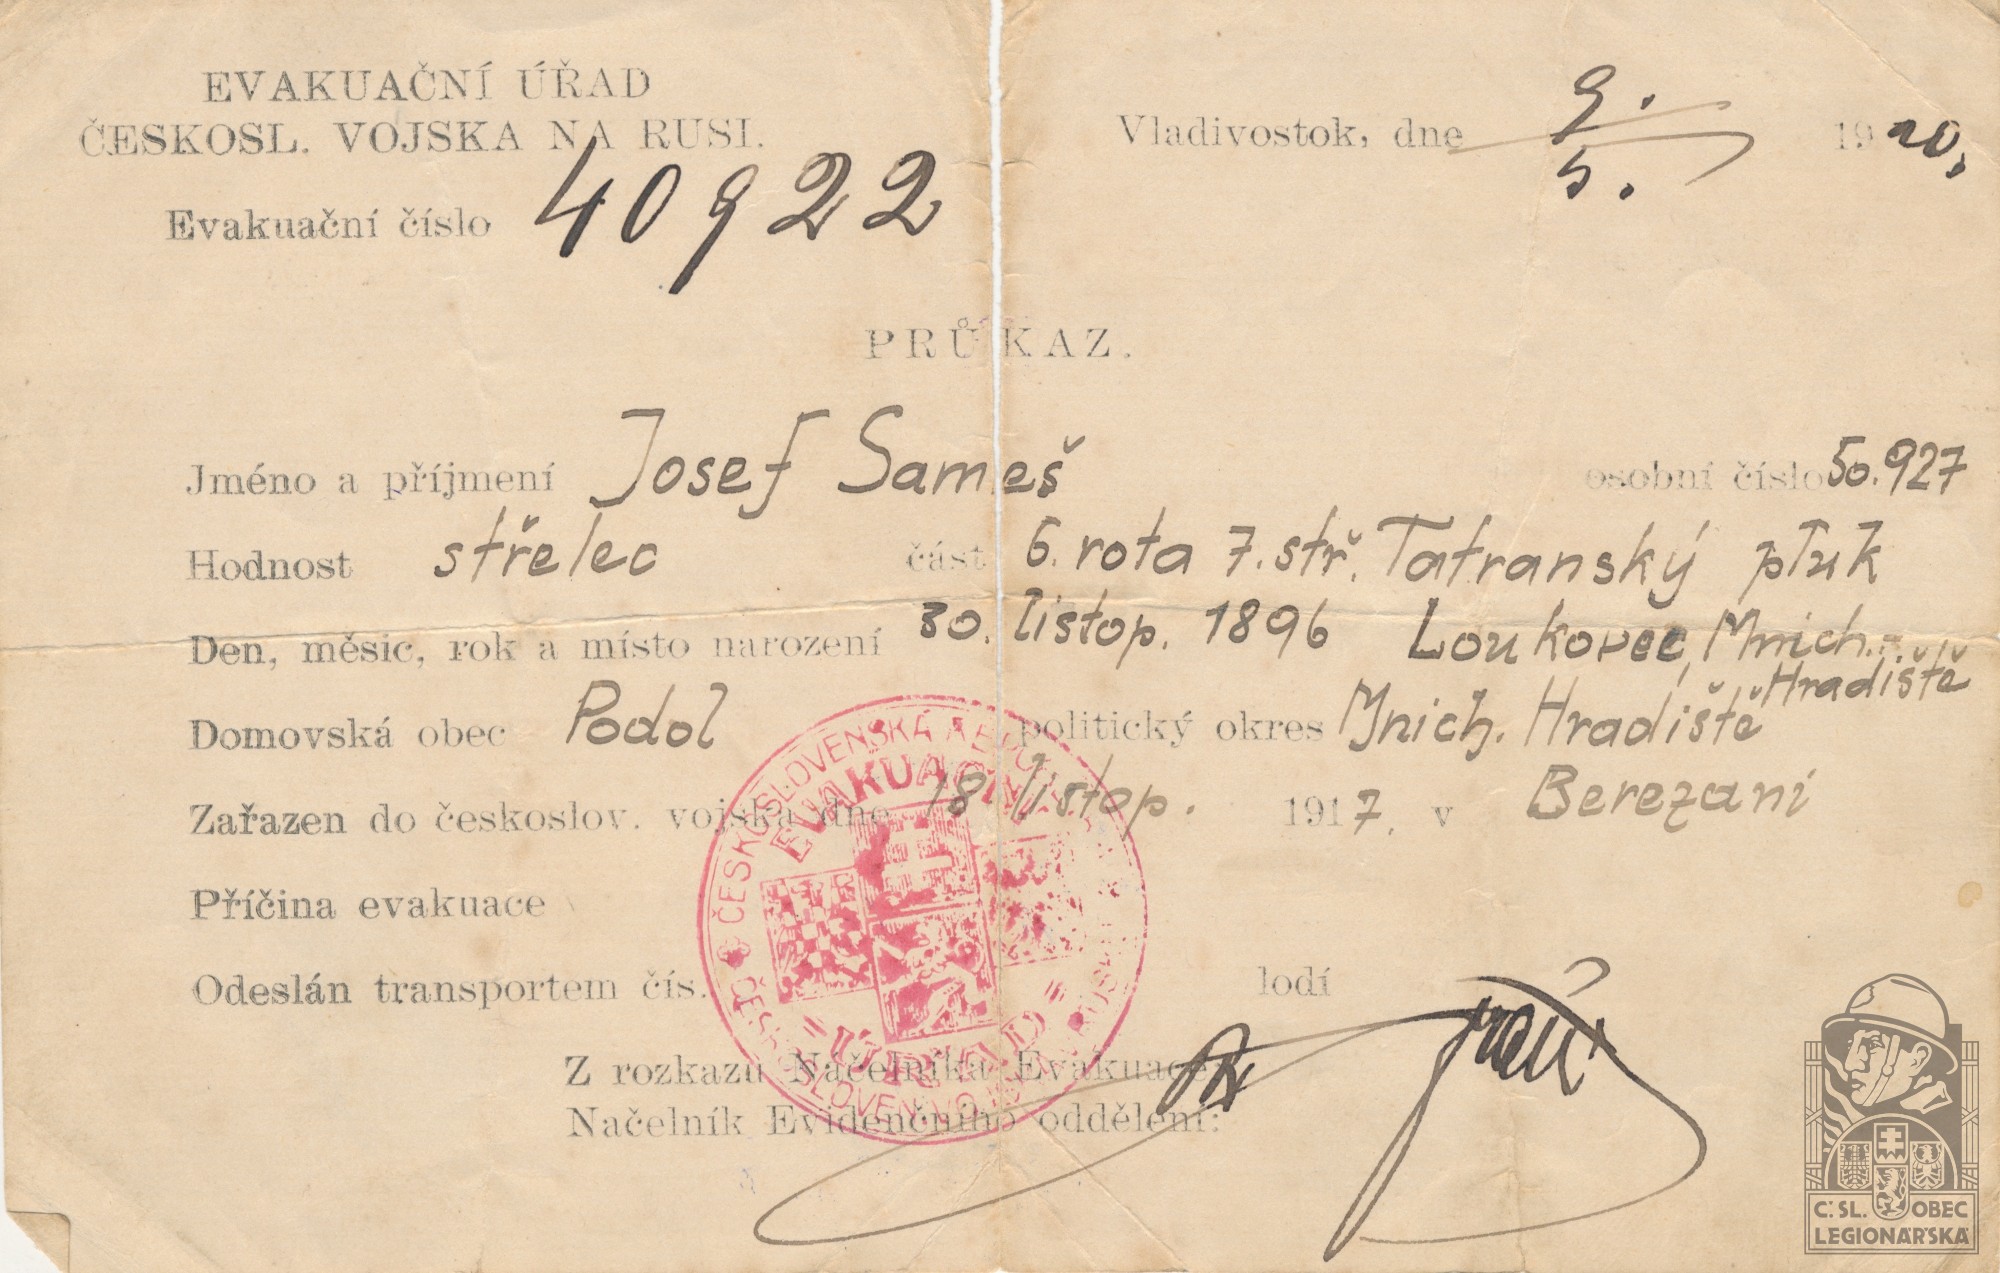 EVAKUAČNÍ ÚŘAD
ČESKOSL. VOJSKA NA RUSI.
Vladivostok, dne 9. 5. 1920.
Evakuační číslo 40922
PRŮKAZ.
Jméno a příjmení Josef Sameš osobní číslo 50.927
Hodnost střelec část 6. rota 7. stř. Tatranský pluk
Den, měsíc, rok a místo narození 30. listop. 1896 Loukovec, Mnich. Hradiště
Domovská obec Podol politický okres Mnich. Hradiště
Zařazen do českoslov. vojska dne 18 listop. 1917. v Berezani
Příčina evakuace
Odeslán transportem čís. lodí
Z rozkazu Náčelníka Evakuace
Načelník Evidenčního oddělení:
ČESKOSLOVENSKÁ
EVAKUAČNÍ
ÚŘAD
Č. SL. OBEC
LEGIONÁŘSKÁ